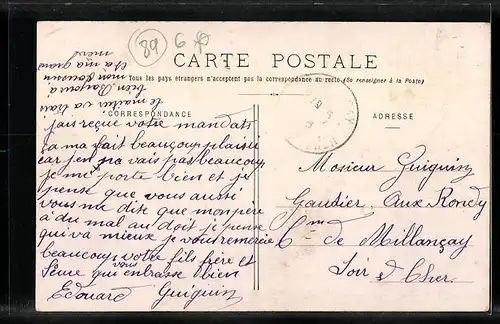 89 6
CARTE POSTALE
Tous les pays étrangers n'acceptent pas la correspondance au recto. (Se renseigner à la Poste)
CORRESPONDANCE
ADRESSE
jais reçue votre mandats
sa ma fait beaucoup plaisir
car j'en na vais pas beaucoup
je me porte bien et je
pense que vous aussi
vous me dite que mon père
à du mal au doit je pense
qui va mieux je vous remercie
beaucoup votre fils frère et
qui vous embrasse bien
Edouard Guiguin
le métier va
bien
mon cousin
et à ma grand
mère
Monsieur Guiguin
Gaudier, Aux Rondy
Cne de Millançay
Loir & Cher